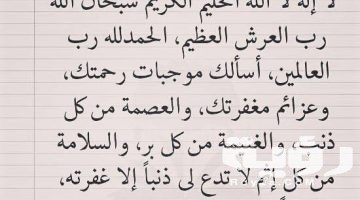 لا إله إلا الله الحليم الكريم سبحان الله
رب العرش العظيم، الحمدلله رب
العالمين، أسألك موجبات رحمتك،
وعزائم مغفرتك، والعصمة من كل
ذنب، والغنيمة من كل بر، والسلامة
من كل إثم لا تدع لى ذنباً إلا غفرته،
رؤية
maqall.net